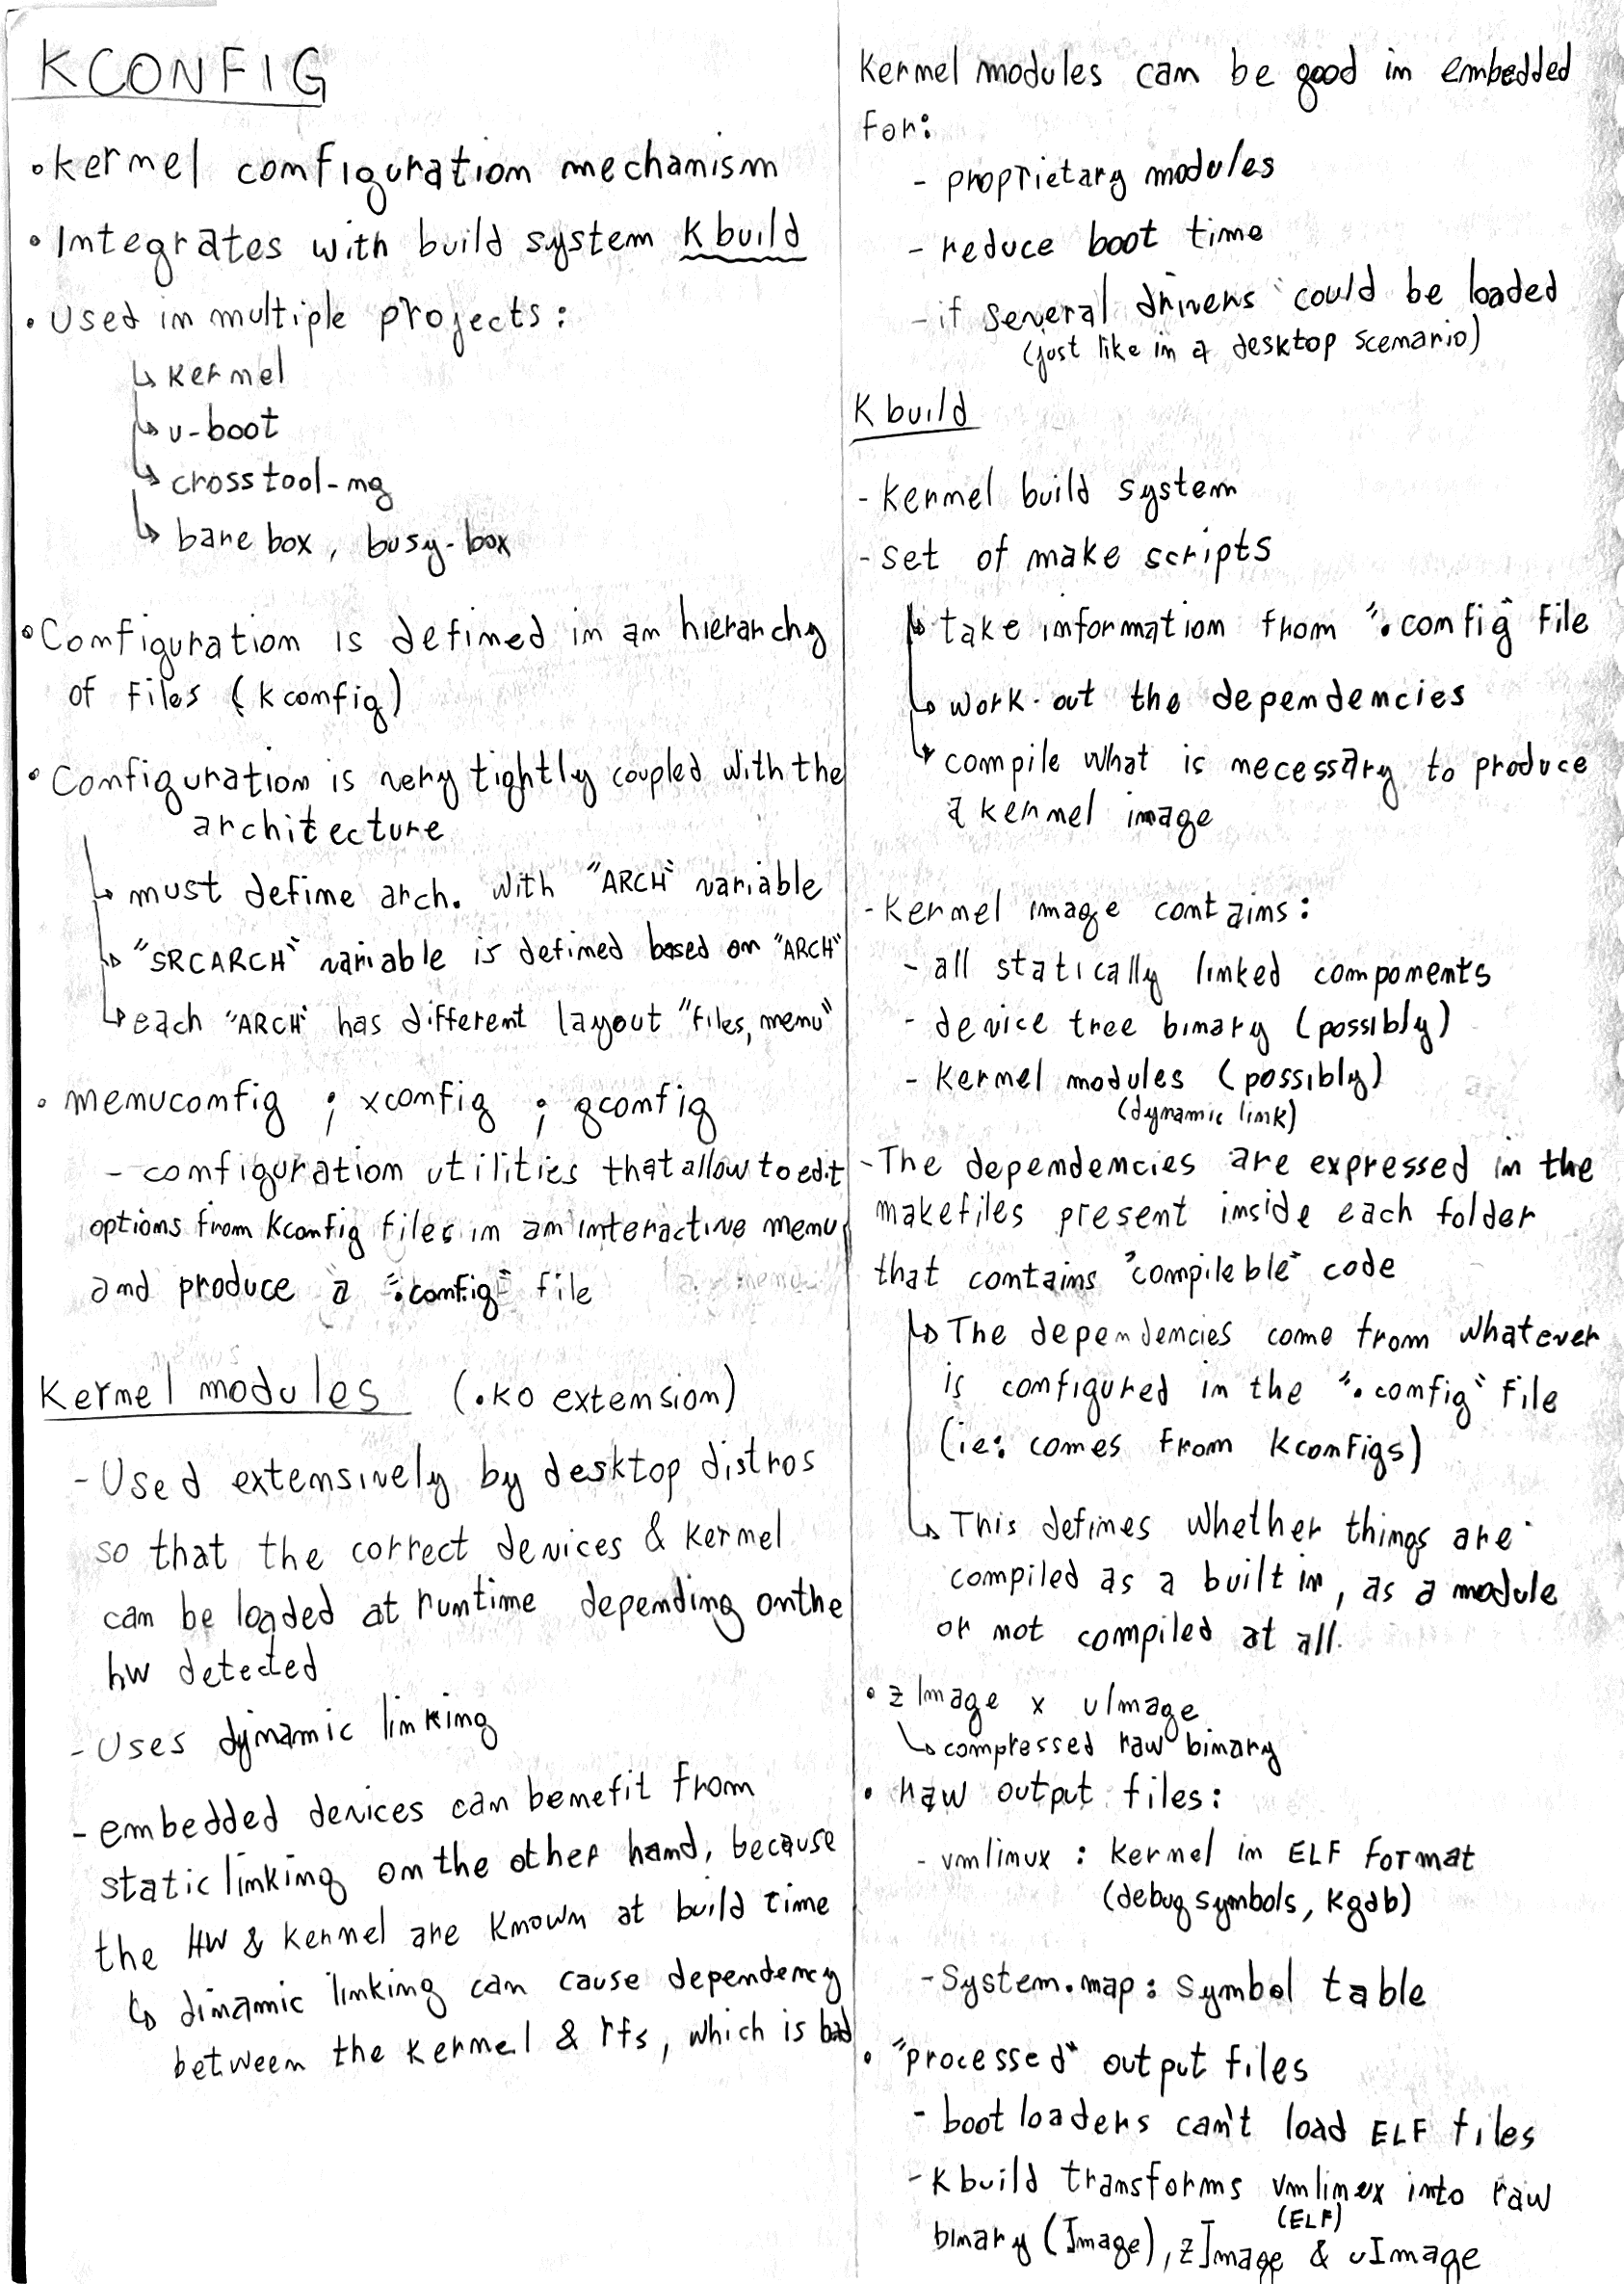 KCONFIG
• kernel configuration mechanism
• Integrates with build system Kbuild
• Used in multiple projects:
↳ kernel
↳ u-boot
↳ crosstool-ng
↳ barebox, busy-box
• Configuration is defined in an hierarchy
of files (kconfig)
• Configuration is very tightly coupled with the
architecture
↳ must define arch. with "ARCH" variable
↳ "SRCARCH" variable is defined based on "ARCH"
↳ each "ARCH" has different layout "files, menu"
• menuconfig ; xconfig ; gconfig
- configuration utilities that allow to edit
options from Kconfig files in an interactive menu
and produce a ".config" file
Kernel modules (.ko extension)
- Used extensively by desktop distros
so that the correct devices & kernel
can be loaded at runtime depending on the
hw detected
- Uses dynamic linking
- embedded devices can benefit from
static linking on the other hand, because
the HW & kernel are known at build time
↳ dinamic linking can cause dependency
between the kernel & rfs, which is bad
Kernel modules can be good in embedded
for:
- proprietary modules
- reduce boot time
- if several drivers could be loaded
(just like in a desktop scenario)
Kbuild
- kernel build system
- set of make scripts
↳ take information from ".config" file
↳ work-out the dependencies
↳ compile what is necessary to produce
a kernel image
- kernel image contains:
- all statically linked components
- device tree binary (possibly)
- kernel modules (possibly)
(dynamic link)
- The dependencies are expressed in the
makefiles present inside each folder
that contains "compileble" code
↳ The dependencies come from whatever
is configured in the ".config" file
(ie: comes from kconfigs)
↳ This defines whether things are
compiled as a built in, as a module
or not compiled at all.
• zImage x uImage
↳ compressed raw binary
• raw output files:
- vmlinux : kernel in ELF format
(debug symbols, kgdb)
- System.map : symbol table
• "processed" output files
- bootloaders can't load ELF files
- kbuild transforms vmlinux into raw
(ELF)
binary (Image), zImage & uImage